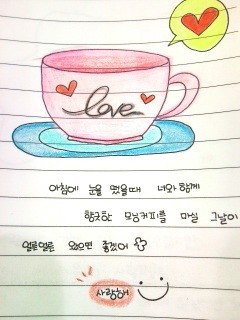 love
아침에 눈을 떴을때 너와 함께
향긋한 모닝커피를 마실 그날이
얼른얼른 왔으면 좋겠어
사랑해